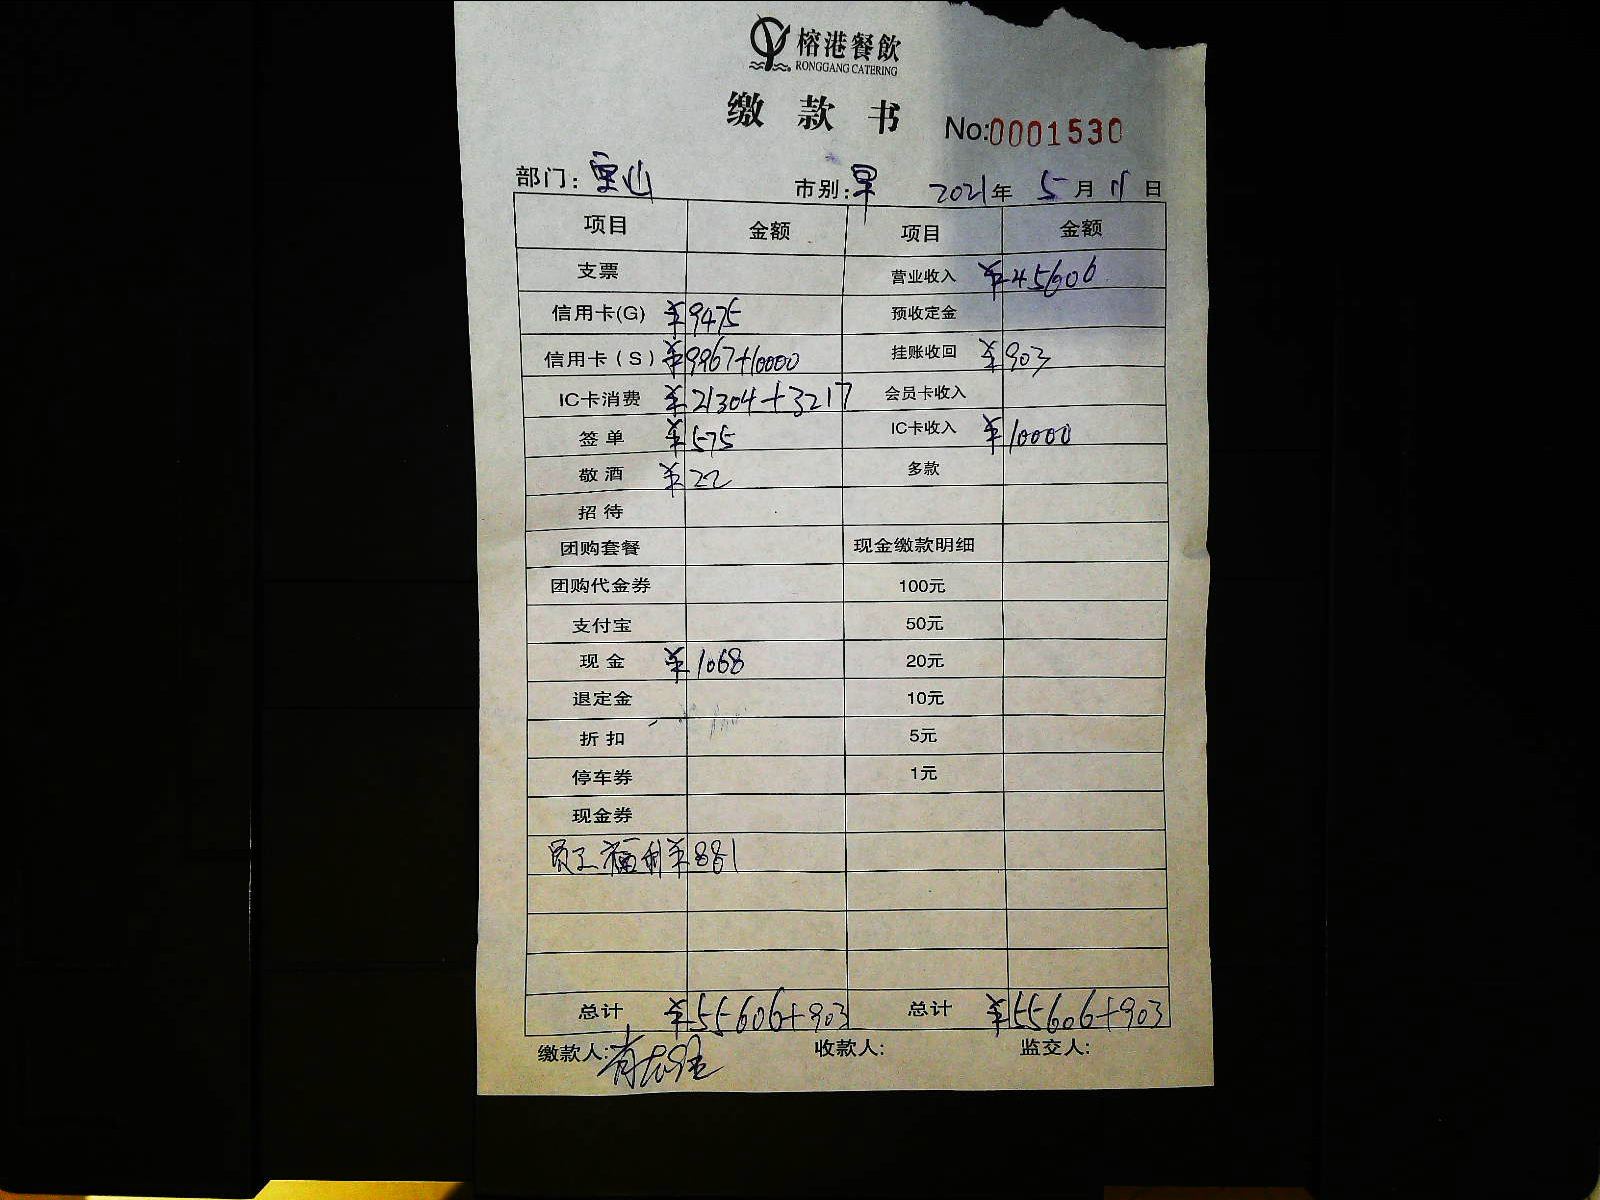 榕港餐飲
RONGGANG CATERING
缴款书 No:0001530
部门: 宝山 市别: 早 2021年 5月 11日
项目 金额 项目 金额
支票 营业收入 ¥45606
信用卡(G) ¥9475 预收定金
信用卡(S) ¥9967+10000 挂账收回 ¥903
IC卡消费 ¥21304+3217 会员卡收入
签单 ¥575 IC卡收入 ¥10000
敬酒 ¥22 多款
招待
团购套餐 现金缴款明细
团购代金券 100元
支付宝 50元
现金 ¥1068 20元
退定金 10元
折扣 5元
停车券 1元
现金券
员工福利 ¥881
总计 ¥55606+903 总计 ¥55606+903
缴款人: 收款人: 监交人: